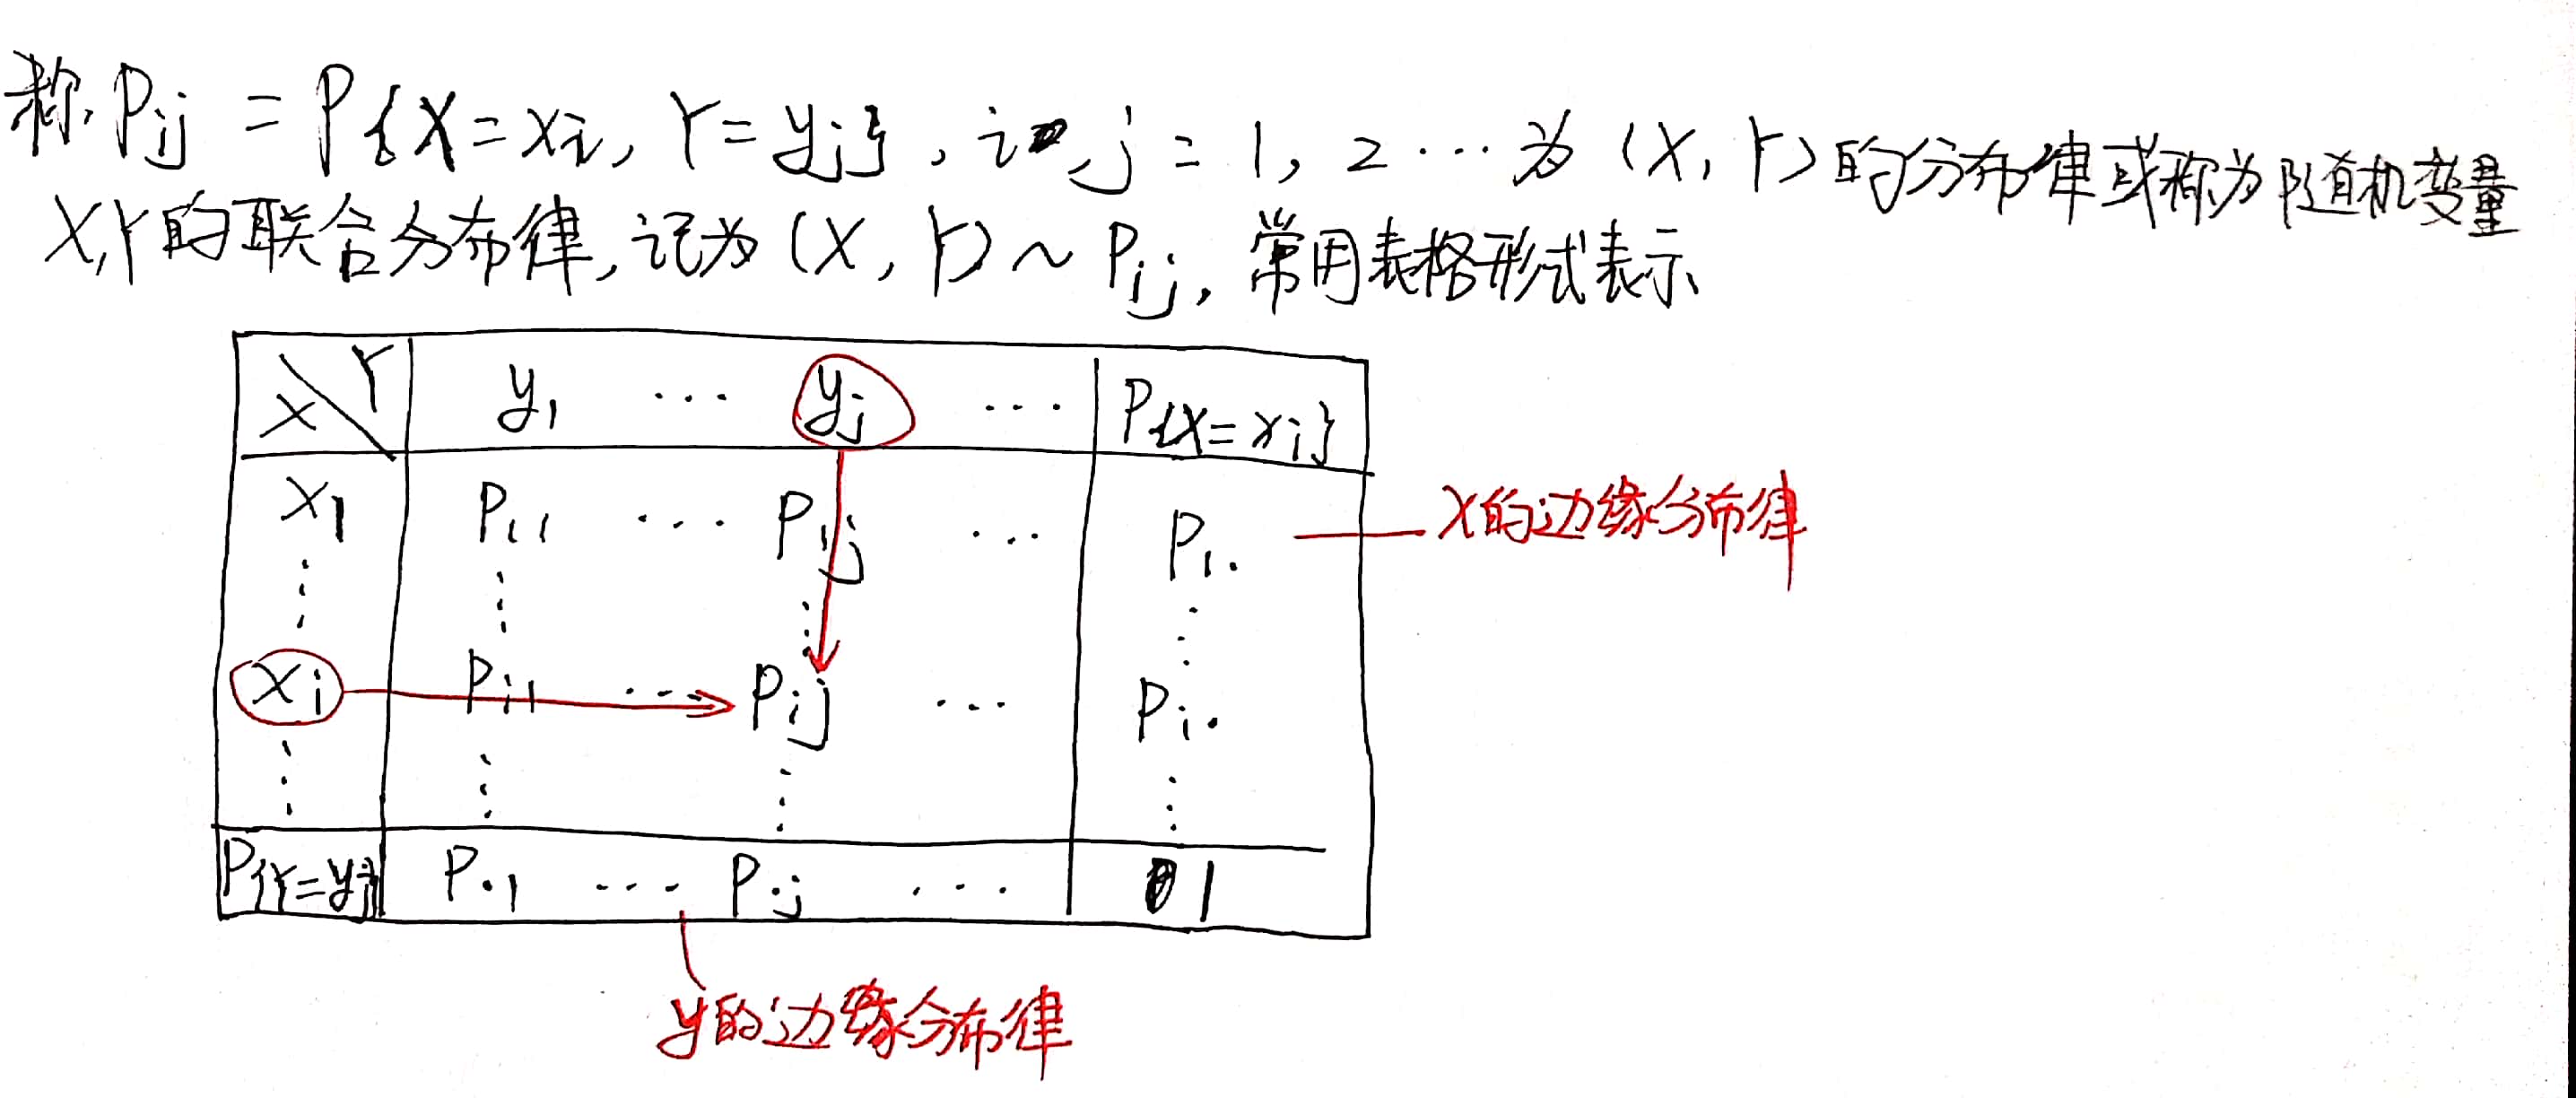 称 Pij = P{X=xi, Y=yj}, i,j = 1, 2 ··· 为 (X, Y) 的分布律或称为随机变量
X,Y的联合分布律,记为 (X, Y) ~ Pij, 常用表格形式表示
X Y y1 ··· yj ··· P{X=xi}
x1 P11 ··· P1j ··· P1·
X的边缘分布律
xi Pi1 ··· Pij ··· Pi·
P{Y=yj} P·1 ··· P·j ··· 1
y的边缘分布律